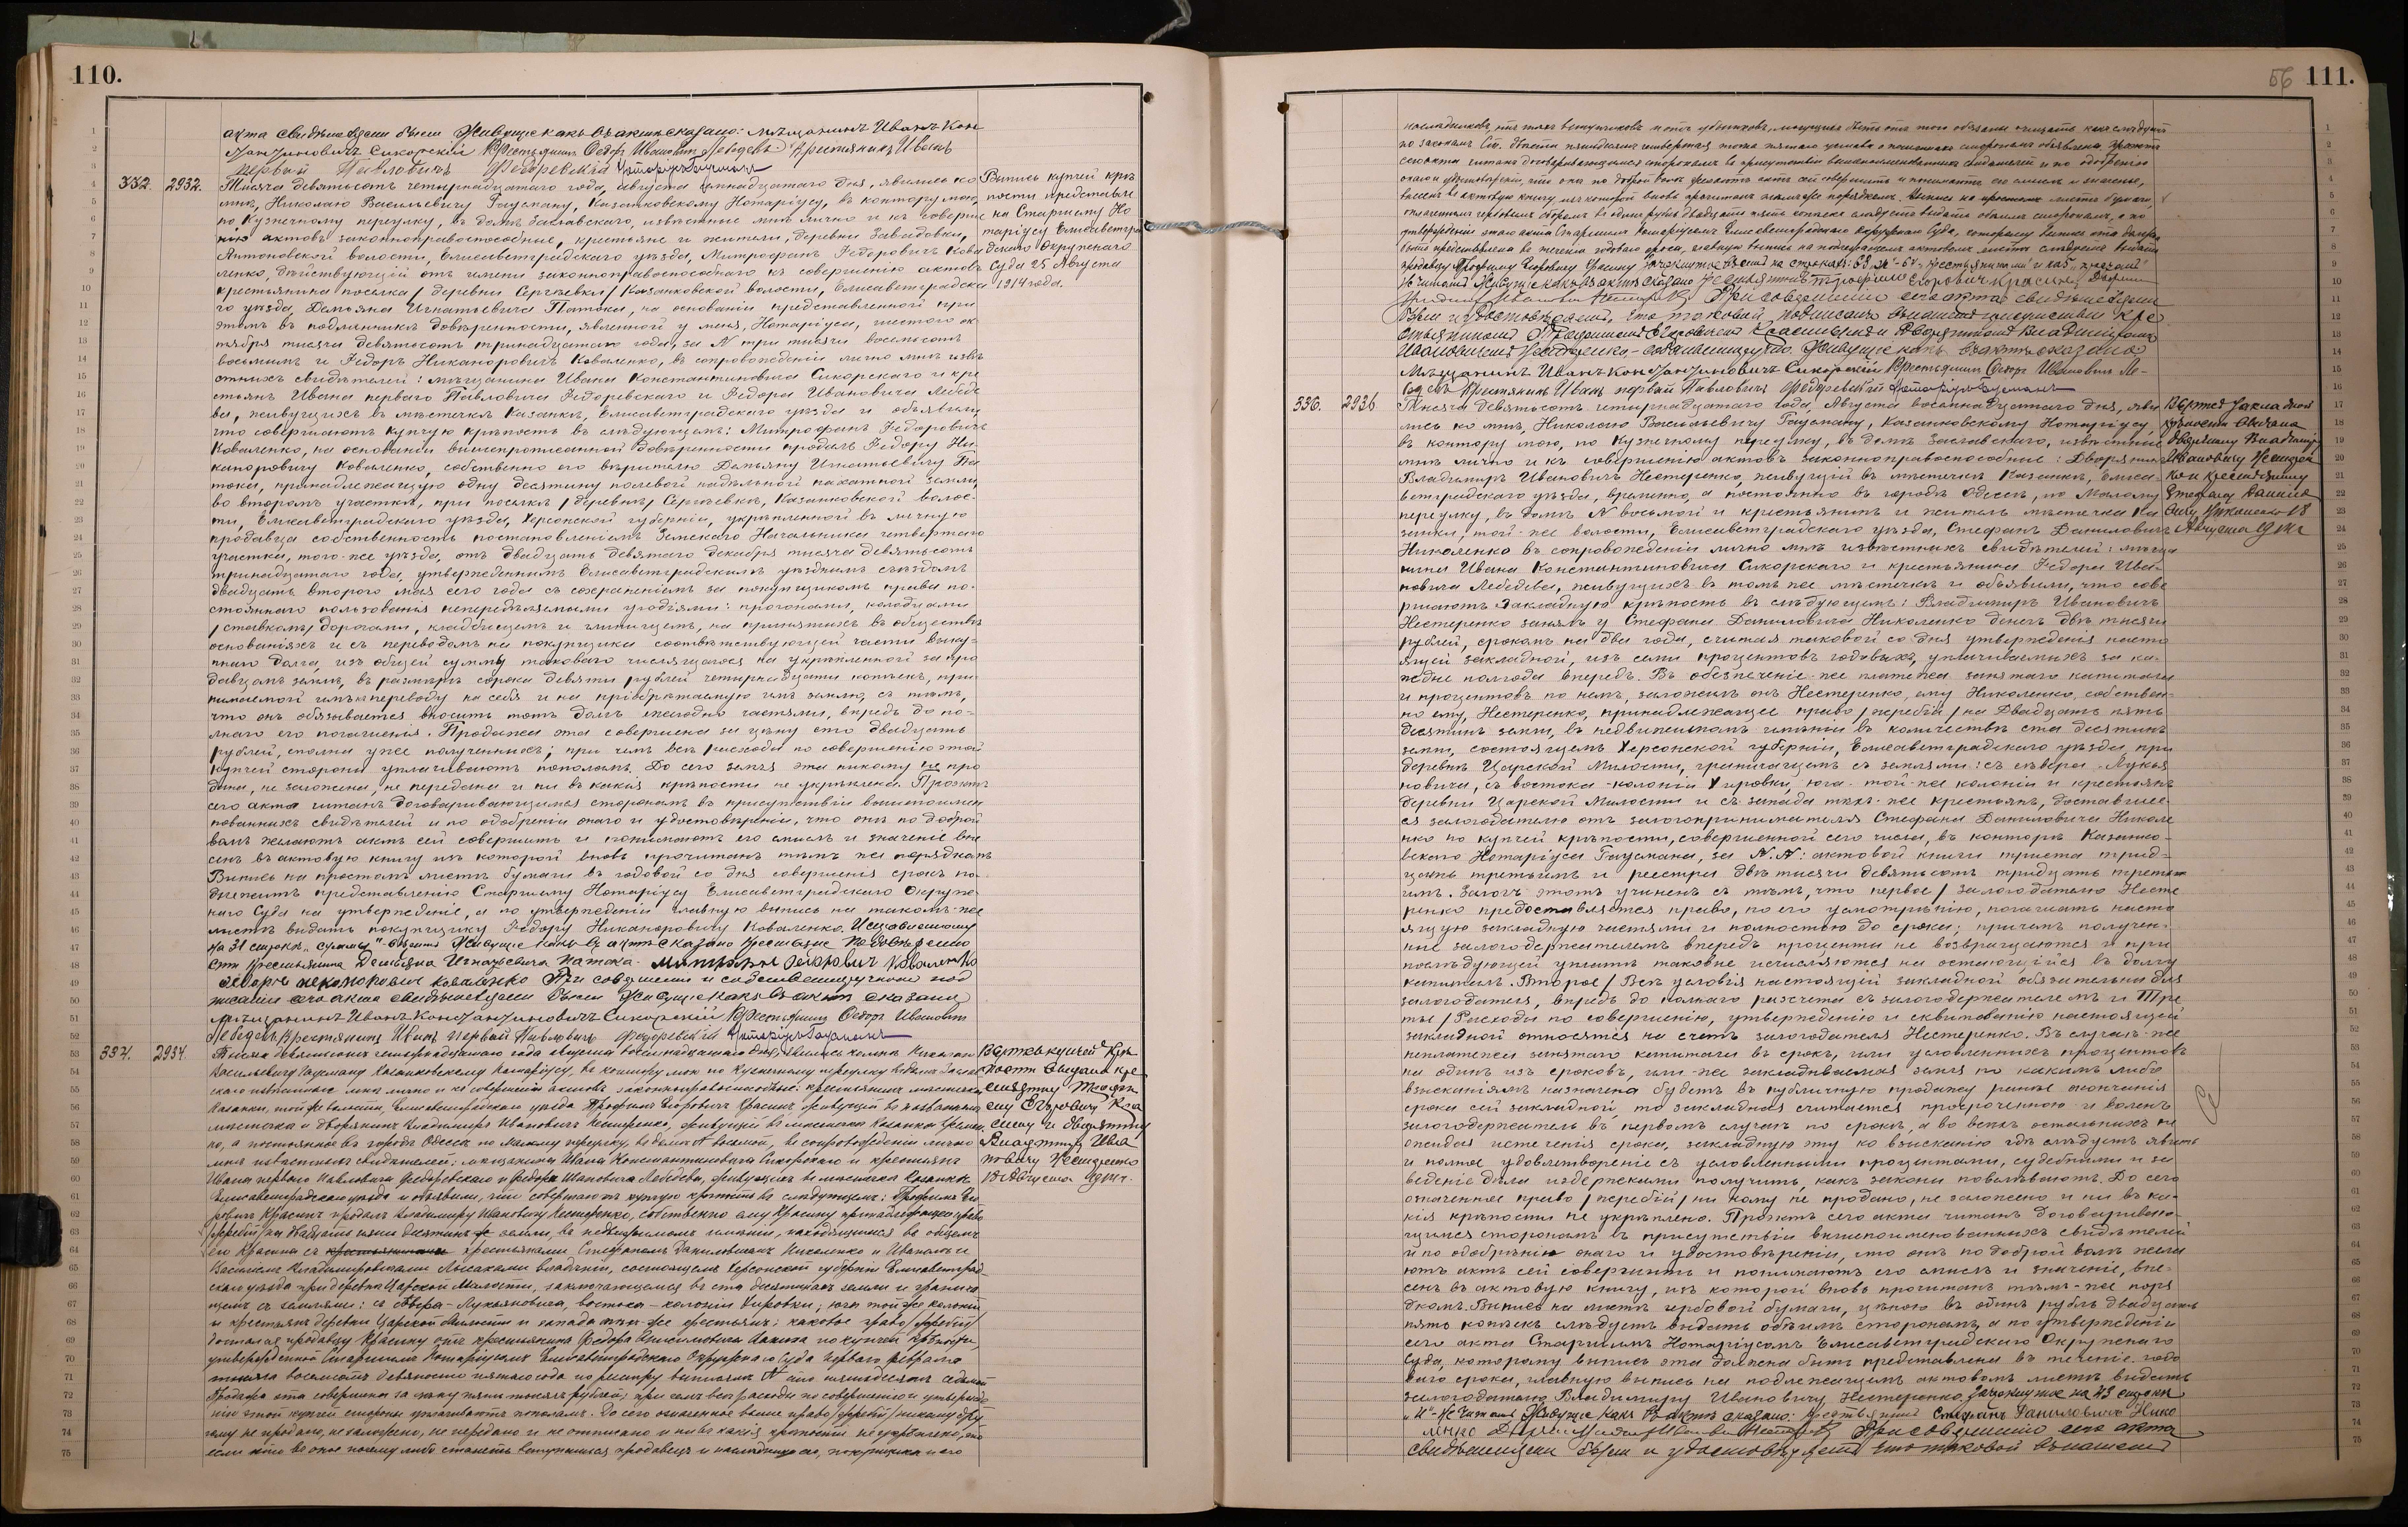 110.
акта свидѣтелями были Живущіе какъ въ актѣ сказано: мѣщанинъ Иванъ Кон
стантиновичъ Сикорскій Крестьянинъ Федоръ Ивановичъ Лебедевъ Крестьянинъ Иванъ
первый Павловичъ Федоревскій Нотаріусъ Гаусманъ
332. 2932. Тысяча девятьсотъ четырнадцатаго года, августа дня, явились ко
мнѣ, Николаю Васильевичу Гаусману, Казанковскому Нотаріусу, въ контору мою,
по Кузнечному переулку, въ домѣ Заславскаго, извѣстные мнѣ лично и къ соверше
нію актовъ законноправоспособные, крестьяне и жители, деревни Завадовки,
Антоновской волости, Елисаветградскаго уѣзда, Митрофанъ Федоровичъ Кова
ленко, дѣйствующій отъ имени законноправоспособнаго къ совершенію актовъ
крестьянина поселка /деревни Сергѣевки/ Казанковской волости, Елисаветградска
го уѣзда, Демьяна Игнатьевича Патоки, на основаніи представленной при
этомъ въ подлинникѣ довѣренности, явленной у меня, Нотаріуса, шестого ок
тября тысяча девятьсотъ тринадцатаго года, за N три тысячи восемьсотъ
восьмымъ и Федоръ Никаноровичъ Коваленко, въ сопровожденіи лично мнѣ извѣ
стныхъ свидѣтелей: мѣщанина Ивана Константиновича Сикорскаго и кре
стьянъ Ивана перваго Павловича Федоревскаго и Федора Ивановича Лебеде
ва, живущихъ въ мѣстечкѣ Казанкѣ, Елисаветградскаго уѣзда и объявили,
что совершаютъ купчую крѣпость въ слѣдующемъ: Митрофанъ Федоровичъ
Коваленко, на основаніи вышепрописанной довѣренности продалъ Федору Ни
каноровичу Коваленко, собственно его вѣрителю Демьяну Игнатьевичу Па
токи, принадлежащую одну десятину полевой надѣльной пахатной земли,
во второмъ участкѣ, при поселкѣ /деревнѣ/ Сергѣевкѣ, Казанковской волос-
ти, Елисаветградскаго уѣзда, Херсонской губерніи, укрѣпленной въ личную
продавца собственность постановленіемъ Земскаго Начальника четвертаго
участка, того-же уѣзда, отъ двадцать девятаго декабря тысяча девятьсотъ
тринадцатаго года, утвержденнымъ Елисаветградскимъ уѣзднымъ съѣздомъ
двадцать второго мая сего года съ сохраненіемъ за покупщикомъ права по-
стояннаго пользованія непередѣляемыми угодіями: прогонами, колодцами
/ставкомъ/ дорогами, кладбищемъ и глинищемъ, на принятыхъ въ обществѣ
основаніяхъ и съ переводомъ на покупщика соотвѣтствующей части выку-
пного долга, изъ общей суммы таковаго числящагося на укрѣпленной за про
давцомъ землѣ, въ размѣрѣ сорока девяти рублей четырнадцати копѣекъ, при
нимаемой имъ къ переводу на себя и на пріобрѣтаемую имъ землю, съ тѣмъ,
что онъ обязывается вносить тотъ долгъ ежегодно частями, впредь до по-
лнаго его погашенія. Продажа эта совершена за цѣну сто двадцать
рублей, сполна уже полученныхъ; при чемъ всѣ расходы по совершенію этой
купчей стороны уплачиваютъ пополамъ. До сего земля эта никому не про
дана, не заложена, не передана и ни въ какія крѣпости не укрѣплена. Проэктъ
сего акта читанъ договаривающимся сторонамъ въ присутствіи вышепоиме
нованныхъ свидѣтелей и по одобреніи онаго и удостовѣреніи, что они по доброй
волѣ желаютъ актъ сей совершить и понимаютъ его смыслъ и значеніе вне
сенъ въ актовую книгу изъ которой вновь прочитанъ тѣмъ же порядкомъ
Выпись на простомъ листѣ бумаги въ годовой со дня совершенія срокъ по-
длежитъ представленію Старшему Нотаріусу Елисаветградскаго Окруж
наго Суда на утвержденіе, а по утвержденіи главную выпись на такомъ-же
листѣ выдать покупщику Федору Никаноровичу Коваленко. Исправленному
на 31 строкѣ „суммы" вѣрить Живущіе какъ въ актѣ сказано крестьяне По довѣренію
отъ крестьянина Демьяна Игнатьевича Патока. Митрофанъ Федоровичъ Коваленко
Федоръ Никонорович Коваленко При совершеніи и собственноручномъ под
писаніи сего акта свидѣтелями были Живущіе какъ въ актѣ сказано
мѣщанинъ Иванъ Константиновичъ Сикорскій Крестьянинъ Федоръ Ивановичъ
Лебедевъ Крестьянинъ Иванъ первый Павловичъ Федоревскій Нотаріусъ Гаусманъ
Выпись купчей крѣ
пости представле
на Старшему Но
таріусу Елисаветгра
дскаго Окружнаго
Суда 25 Августа
1914 года.
334. 2934. Тысяча девятьсотъ четырнадцатаго года августа восемнадцатаго дня, явились ко мнѣ Николаю
Васильевичу Гаусману Казанковскому Нотаріусу, въ контору мою по Кузнечному переулку въ домѣ Заслав
скаго извѣстные мнѣ лично и къ совершенію актовъ законноправоспособные: крестьянинъ мѣстечка
Казанки, той же волости, Елисаветградскаго уѣзда Трофимъ Егоровичъ Красинъ живущій въ названномъ
мѣстечкѣ и дворянинъ Владимиръ Ивановичъ Нестеренко, живущій въ мѣстечкѣ Казанкѣ времен
но, а постоянно въ городѣ Одессѣ по Малому переулку, въ домѣ N восьмой, въ сопровожденіи лично
мнѣ извѣстныхъ свидѣтелей: мѣщанина Ивана Константиновича Сикорскаго и крестьянъ
Ивана перваго Павловича Федоревскаго и Федора Ивановича Лебедева, живущихъ въ мѣстечкѣ Казанкѣ
Елисаветградскаго уѣзда и объявили, что совершаютъ купчую крѣпость въ слѣдующемъ: Трофимъ Его
ровичъ Красинъ продалъ Владимиру Ивановичу Нестеренко, собственно ему Красину принадлежащее право
/жребій/ на двадцать пять десятинъ земли, въ недвижимомъ имѣніи, находящимся въ общемъ
его Красина съ крестьянами Стефаномъ Даниловичемъ Николенко и Иваномъ и
Василіемъ Владимировичами Лысаками владѣніи, состоящемъ Херсонской губерніи Елисаветград-
скаго уѣзда при деревнѣ Царской Милости, заключающемся въ ста десятинахъ земли и гранича
щемъ съ землями: съ сѣвера - Лукьяновича, востока - колоніи Кировки; юга той же колоніи
и крестьянъ деревни Царской Милости и запада тѣхъ-же крестьянъ; каковое право /жребій/
досталось продавцу Красину отъ крестьянина Федора по купчей крѣпости,
утвержденной Старшимъ Нотаріусомъ Елисаветградскаго Окружнаго Суда перваго февраля
тысяча восемьсотъ девяносто пятаго года по реестру выписей N сто пятьдесятъ седьмой
Продажа эта совершена за цѣну пять тысячъ рублей; при семъ всѣ расходы по совершенію и утвержде
нію этой купчей стороны уплачиваютъ пополамъ. До сего означенное выше право /жребій/ никому дру
гому не продано, не заложено, не передано и не отписано и ни въ какія крѣпости не укрѣплено, но
если кто въ оное почему либо станетъ вступаться продавецъ и наслѣдники его, покупщика и его
Выпись купчей крѣ
пости выдана кре
стьянину Трофи
му Егоровичу Кра
сину и дворянину
Владиміру Ива
новичу Нестеренко
18 Августа 1914 г.
56 111.
наслѣдниковъ, отъ тѣхъ вступчиковъ и отъ убытковъ, могущихъ быть отъ того обязаны очищать какъ слѣдуетъ
по законамъ.
сего акта читанъ договаривающимся сторонамъ въ присутствіи вышепоименованныхъ свидѣтелей и по одобреніи
онаго и удостовѣреніи, что они по доброй волѣ желаютъ актъ сей совершить и понимаютъ его смыслъ и значеніе,
внесенъ въ актовую книгу изъ которой вновь прочитанъ тѣмъ же порядкомъ. Выпись на простомъ листѣ бумаги,
оплаченномъ гербовымъ сборомъ въ одинъ рубль двадцать пять копѣекъ слѣдуетъ выдать обѣимъ сторонамъ, а по
утвержденіи этого акта Старшимъ Нотаріусомъ Елисаветградскаго Окружнаго Суда, которому выпись эта должна
быть представлена въ теченіи годового срока, главную выпись на подлежащемъ актовомъ листѣ слѣдуетъ выдать
продавцу Трофиму Егоровичу Красину
не читать Живущіе какъ въ актѣ сказано Крестьянинъ Трофимъ Егоровичъ Красинъ Дворянинъ
Владимиръ Ивановичъ Нестеренко При совершеніи сего акта свидѣтелями
были и удостовѣряемъ, что таковой подписанъ въ нашемъ присутствіи кре
стьяниномъ Трофимомъ Егоровичемъ Красинымъ и дворяниномъ Владиміромъ
Ивановичемъ Нестеренко - собственноручно. Живущіе какъ въ актѣ сказано
Мѣщанинъ Иванъ Константиновичъ Сикорскій Крестьянинъ Федоръ Ивановичъ Ле-
бедевъ Крестьянинъ Иванъ первый Павловичъ Федоревскій Нотаріусъ Гаусманъ
336. 2936 Тысяча девятьсотъ четырнадцатаго года, Августа восемнадцатаго дня, яви
лись ко мнѣ, Николаю Васильевичу Гаусману, Казанковскому Нотаріусу,
въ контору мою, по Кузнечному переулку, въ домѣ Заславскаго, извѣстные
мнѣ лично и къ совершенію актовъ законноправоспособные: Дворянинъ
Владимиръ Ивановичъ Нестеренко, живущій въ мѣстечкѣ Казанкѣ, Елиса-
ветградскаго уѣзда, временно, а постоянно въ городѣ Одессѣ, по Малому
переулку, въ домѣ N восьмой и крестьянинъ и житель мѣстечка Ка
занки, той-же волости, Елисаветградскаго уѣзда, Стефанъ Даниловичъ
Николенко въ сопровожденіи лично мнѣ извѣстныхъ свидѣтелей: мѣща
нина Ивана Константиновича Сикорскаго и крестьянина Федора Ива-
новича Лебедева, живущихъ въ томъ же мѣстечкѣ и объявили, что сове
ршаютъ закладную крѣпость въ слѣдующемъ: Владимиръ Ивановичъ
Нестеренко занялъ у Стефана Даниловича Николенко денегъ двѣ тысячи
рублей, срокомъ на два года, считая таковой со дня утвержденія насто
ящей закладной, изъ семи процентовъ годовыхъ, уплачиваемыхъ за ка-
ждые полгода впередъ. Въ обезпеченіе-же платежа занятаго капитала
и процентовъ по немъ, заложилъ онъ Нестеренко, ему Николенко, собствен-
но ему, Нестеренко, принадлежащее право /жребій/ на двадцать пять
десятинъ земли, въ недвижимомъ имѣніи въ количествѣ ста десятинъ
земли, состоящемъ Херсонской губерніи, Елисаветградскаго уѣзда, при
деревнѣ Царской Милости, граничащемъ съ землями: съ сѣвера - Лукья
новича, съ востока - колоніи Кировки, юга - той-же колоніи и крестьянъ
деревни Царской Милости и съ запада тѣхъ-же крестьянъ, доставшее-
ся залогодателю отъ залогопринимателя Стефана Даниловича Николе
нко по купчей крѣпости, совершенной сего числа, въ конторѣ Казанко-
вскаго Нотаріуса Гаусмана, за N.N: актовой книги триста трид-
цать третьимъ и реестра двѣ тысячи девятьсотъ тридцать треть
имъ. Залогъ этотъ учиненъ съ тѣмъ, что первое/ залогодателю Несте
ренко предоставляется право, по его усмотрѣнію, погашать насто
ящую закладную частями и полностью до срока; причемъ получен-
ные залогодержателемъ впередъ проценты не возвращаются и при
послѣдующей уплатѣ таковые исчисляются на остающійся въ долгу
капиталъ. Второе/ Всѣ условія настоящей закладной обязательны для
залогодателя, впредь до полнаго разсчета съ залогодержателемъ и Тре
тье/ Расходы по совершенію, утвержденію и сквитованію настоящей
закладной относятся на счетъ залогодателя Нестеренко. Въ случаѣ-же
неплатежа занятаго капитала въ срокъ, или условленныхъ процентовъ
на одинъ изъ сроковъ, или-же закладываемая земля по какимъ либо
взысканіямъ назначена будетъ въ публичную продажу ранѣе окончанія
срока сей закладной, то закладная считается просроченною и воленъ
залогодержатель въ первомъ случаѣ по срокѣ, а во всѣхъ остальныхъ не
ожидая истеченія срока, закладную эту ко взысканію гдѣ слѣдуетъ явить
и полное удовлетвореніе съ условленными процентами, судебными и за
веденіе дѣла издержками получить, какъ законы повелѣваютъ. До сего
означенное право /жребій/ ни кому не продано, не заложено и ни въ ка-
кія крѣпости не укрѣплено. Проэктъ сего акта читанъ договариваю-
щимся сторонамъ въ присутствіи вышепоименованныхъ свидѣтелей
и по одобреніи онаго и удостовѣреніи, что они по доброй волѣ жела
ютъ актъ сей совершить и понимаютъ его смыслъ и значеніе, вне-
сенъ въ актовую книгу, изъ которой вновь прочитанъ тѣмъ-же поря
дкомъ. Выпись на листѣ гербовой бумаги, цѣною въ одинъ рубль двадцать
пять копѣекъ слѣдуетъ выдать обѣимъ сторонамъ, а по утвержденіи
сего акта Старшимъ Нотаріусомъ Елисаветградскаго Окружнаго
Суда, которому выпись эта должна быть представлена въ теченіе годо
ваго срока, главную выпись на подлежащемъ актовомъ листѣ выдать
залогодателю Владимиру Ивановичу Нестеренко. Зачеркнутое на 43 строкѣ
„и"-не читать Живущіе какъ въ актѣ сказано: Крестьянинъ Стефанъ Даниловичъ Нико
ленко Дворянинъ Владимиръ Ивановичъ Нестеренко При совершеніи сего акта
свидѣтелями были и удостовѣряемъ что таковой въ нашемъ
Выпись закладной
крѣпости выдана
дворянину Владиміру
Ивановичу Нестерен
ко и крестьянину
Стефану Данило
вичу Николенко 18
Августа 1914 г